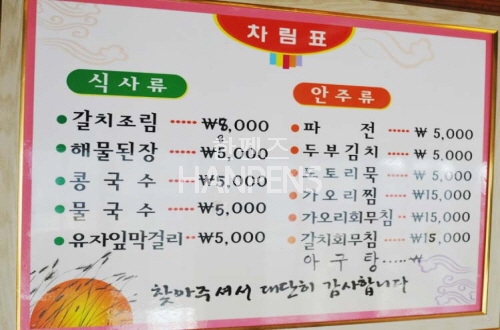 차림표
식사류
갈치조림 ······ ₩8,000
해물된장 ······ ₩5,000
콩국수 ······ ₩5,000
물국수 ······ ₩5,000
유자잎막걸리 ·· ₩5,000
안주류
파전 ····· ₩ 5,000
두부김치 ····· ₩ 5,000
도토리묵 ····· ₩ 5,000
가오리찜 ····· ₩15,000
가오리회무침 ···· ₩15,000
갈치회무침 ···· ₩15,000
아구탕 ····· ₩
찾아주셔서 대단히 감사합니다
하펜즈
HANPENS